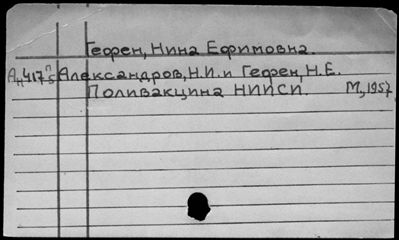 Гефен, Нина Ефимовна.
Ан417п/5 Александров, Н.И. и Гефен, Н.Е.
Поливакцина НИИСИ. М, 1957